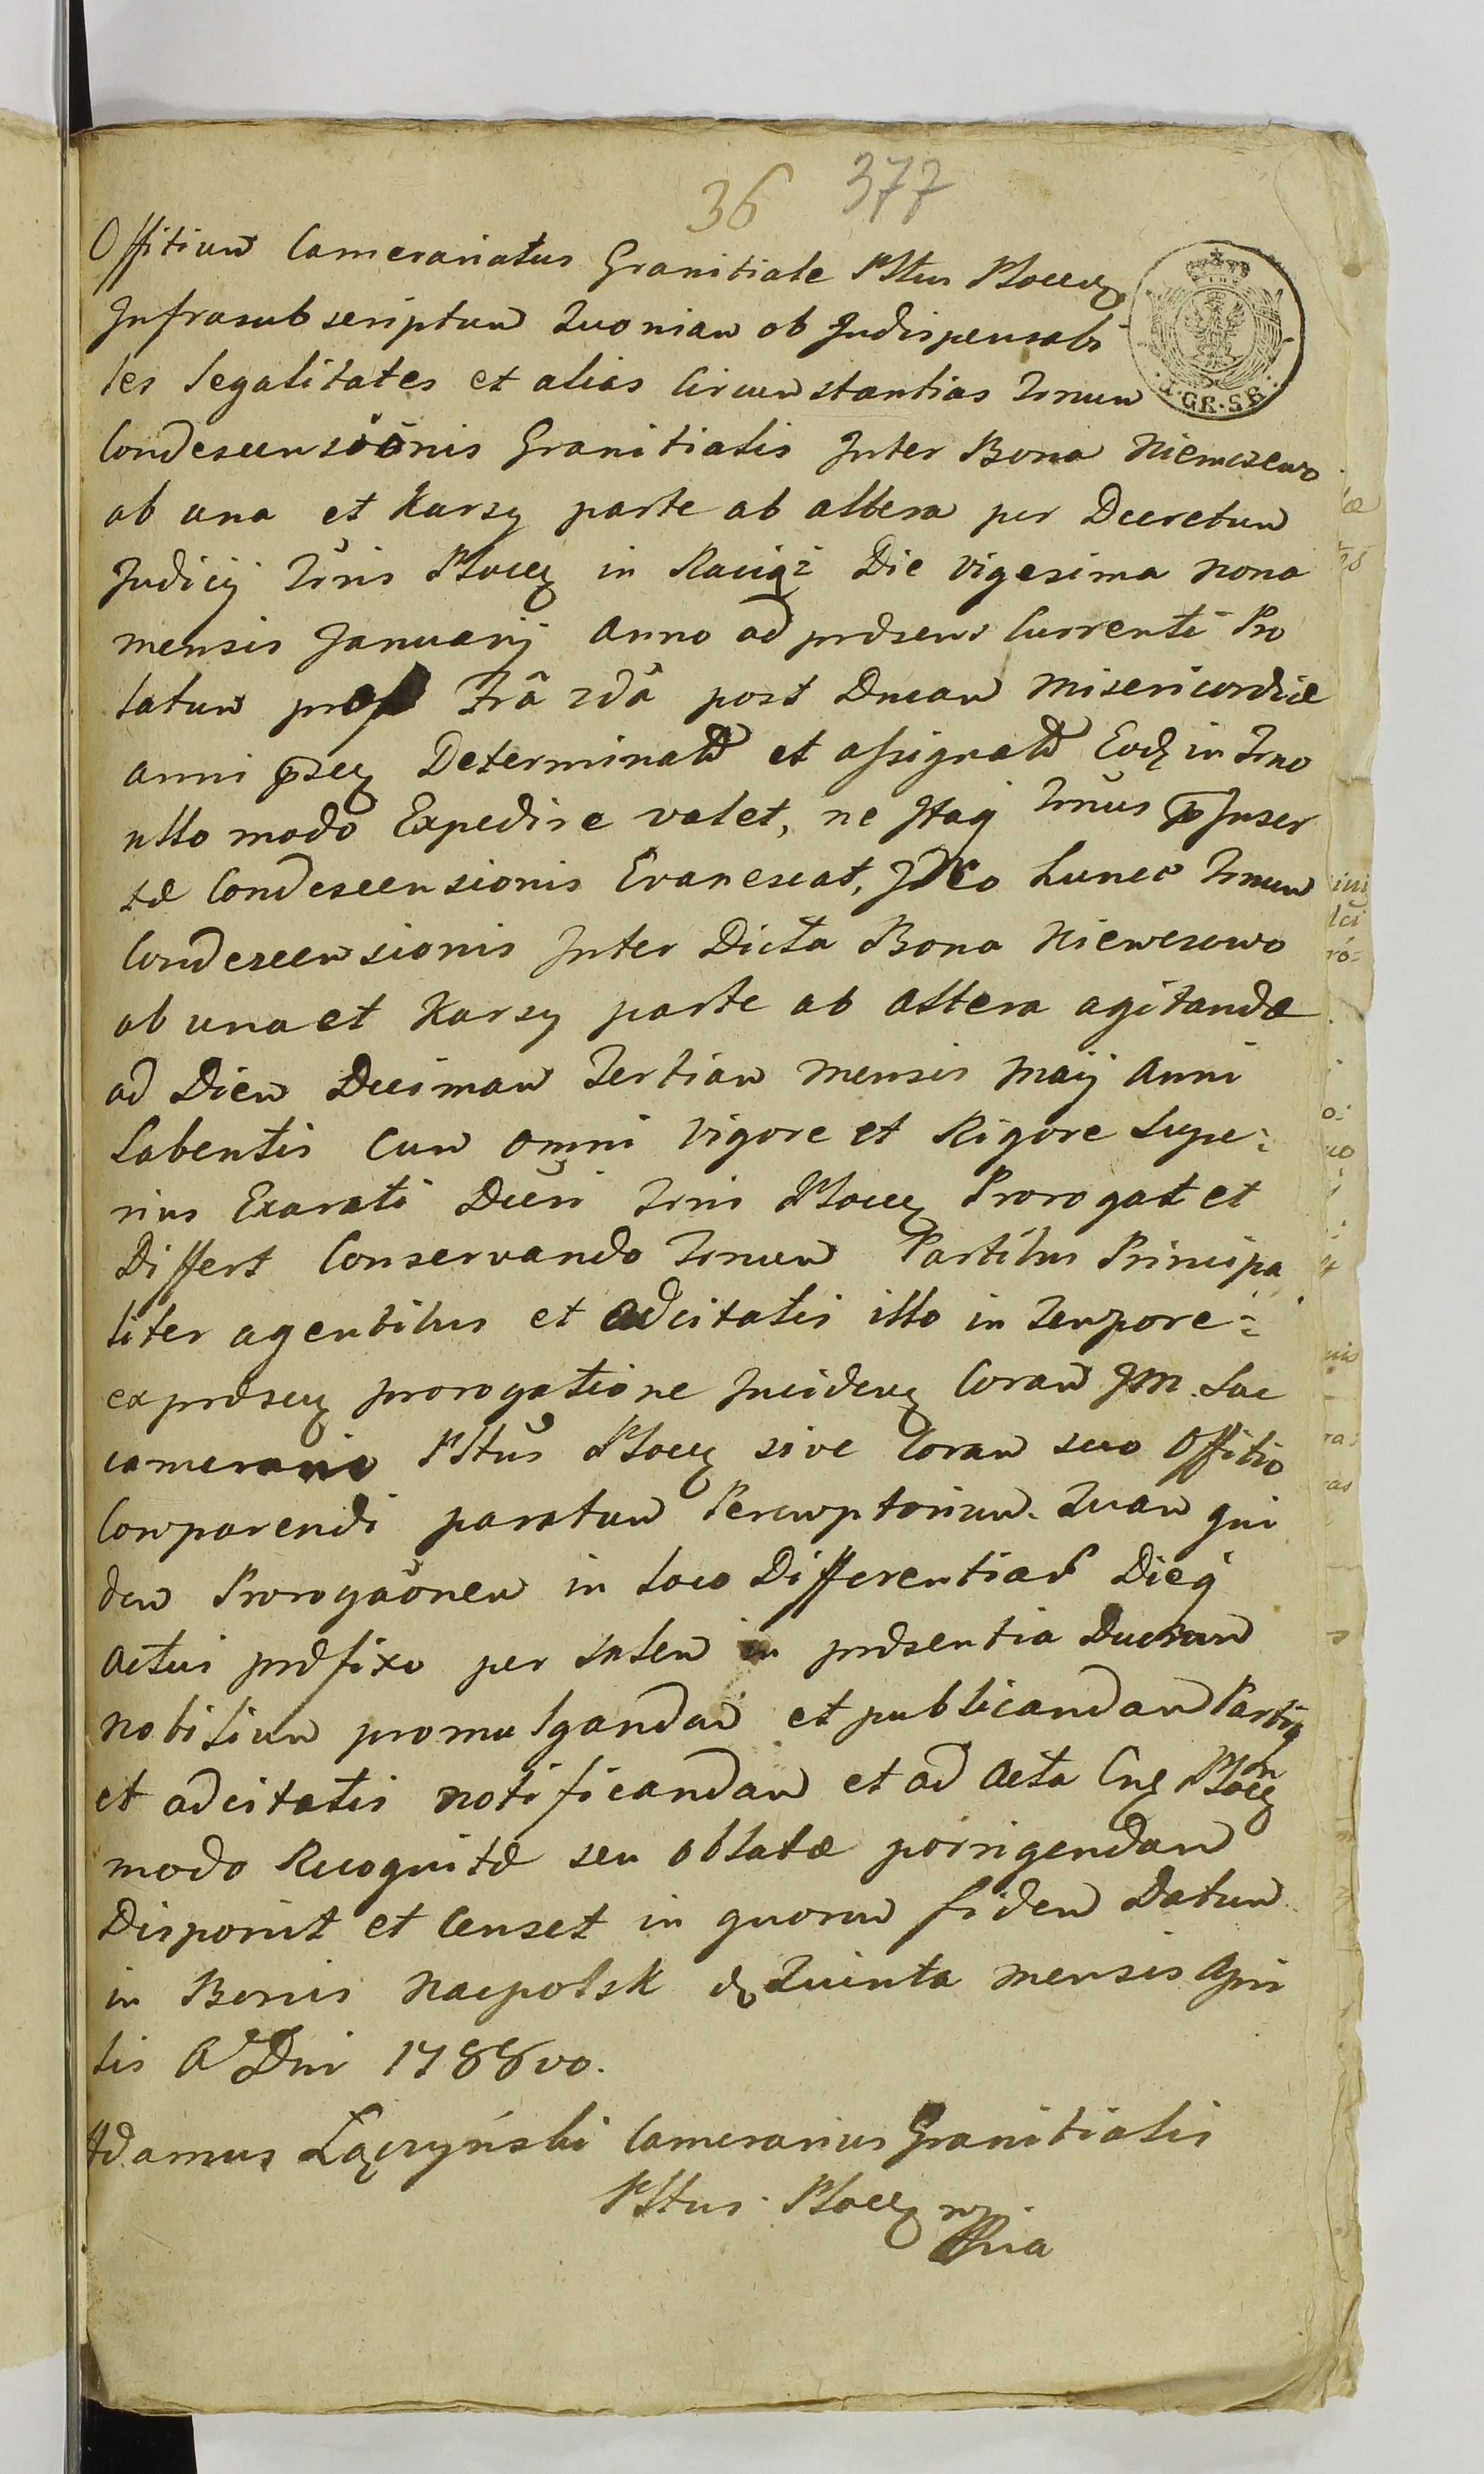 36 377
Offitium Camerariatus Granitiale Pltus Plocen
Infrasubscriptum Quoniam ob Indispensabi
les legalitates et alias Circumstantias Trnum
Condescensiõnis Granitialis Inter Bona Niemczewo
ab una et Karsy parte ab altera per Decretum
Judicij Trris Plocen in Raciąż Die vigesima nona
mensis Januarij Anno ad præsens Currenti Pro
latum pro Frâ 2dâ post Dncam Misericordiæ
anni p̄sen Determinatũ et assignatũ Eodem in Trno
ullo modo Expedire valet, ne Itaq Trnus p̄Inser
tæ Condescensionis Evanescat, Ideo hunce Trnum
Condescensionis Inter Dicta Bona Niemczewo
ab una et Karsy parte ab altera agitandæ
ad Diem Decimam Tertiam mensis Maij Anni
Labentis Cum omni vigore et Rigore Supe:
rius Exarati Dcti Trris Plocen Prorogat et
Differt Conservando Trnum Partibus Principa
liter agentibus et adcitatis illo in Tempore:
ex præsen prorogatione Inciden Coram JM. Suc
camerario Pltus Plocen sive Coram suo Offitio
Comparendi paratum Peremptorium. Quam qui
dem Prorogaõnem in loco Differentiar Dieq
Actui præfixo per talem in præsentia Duorum
nobilium promulgandam et publicandam Partibq
et adcitatis notificandam et ad Acta Cas Plocen
modo Recognitæ seu oblatæ porrigendam
Disponit et Censet in quorum fidem Datum
in Bonis Nacpolsk d Quinta mensis Apri
lis Aº Dni 1788vo.
Adamus Łączyński Camerarius Granitialis
Pltus Plocen mppria
GR. S